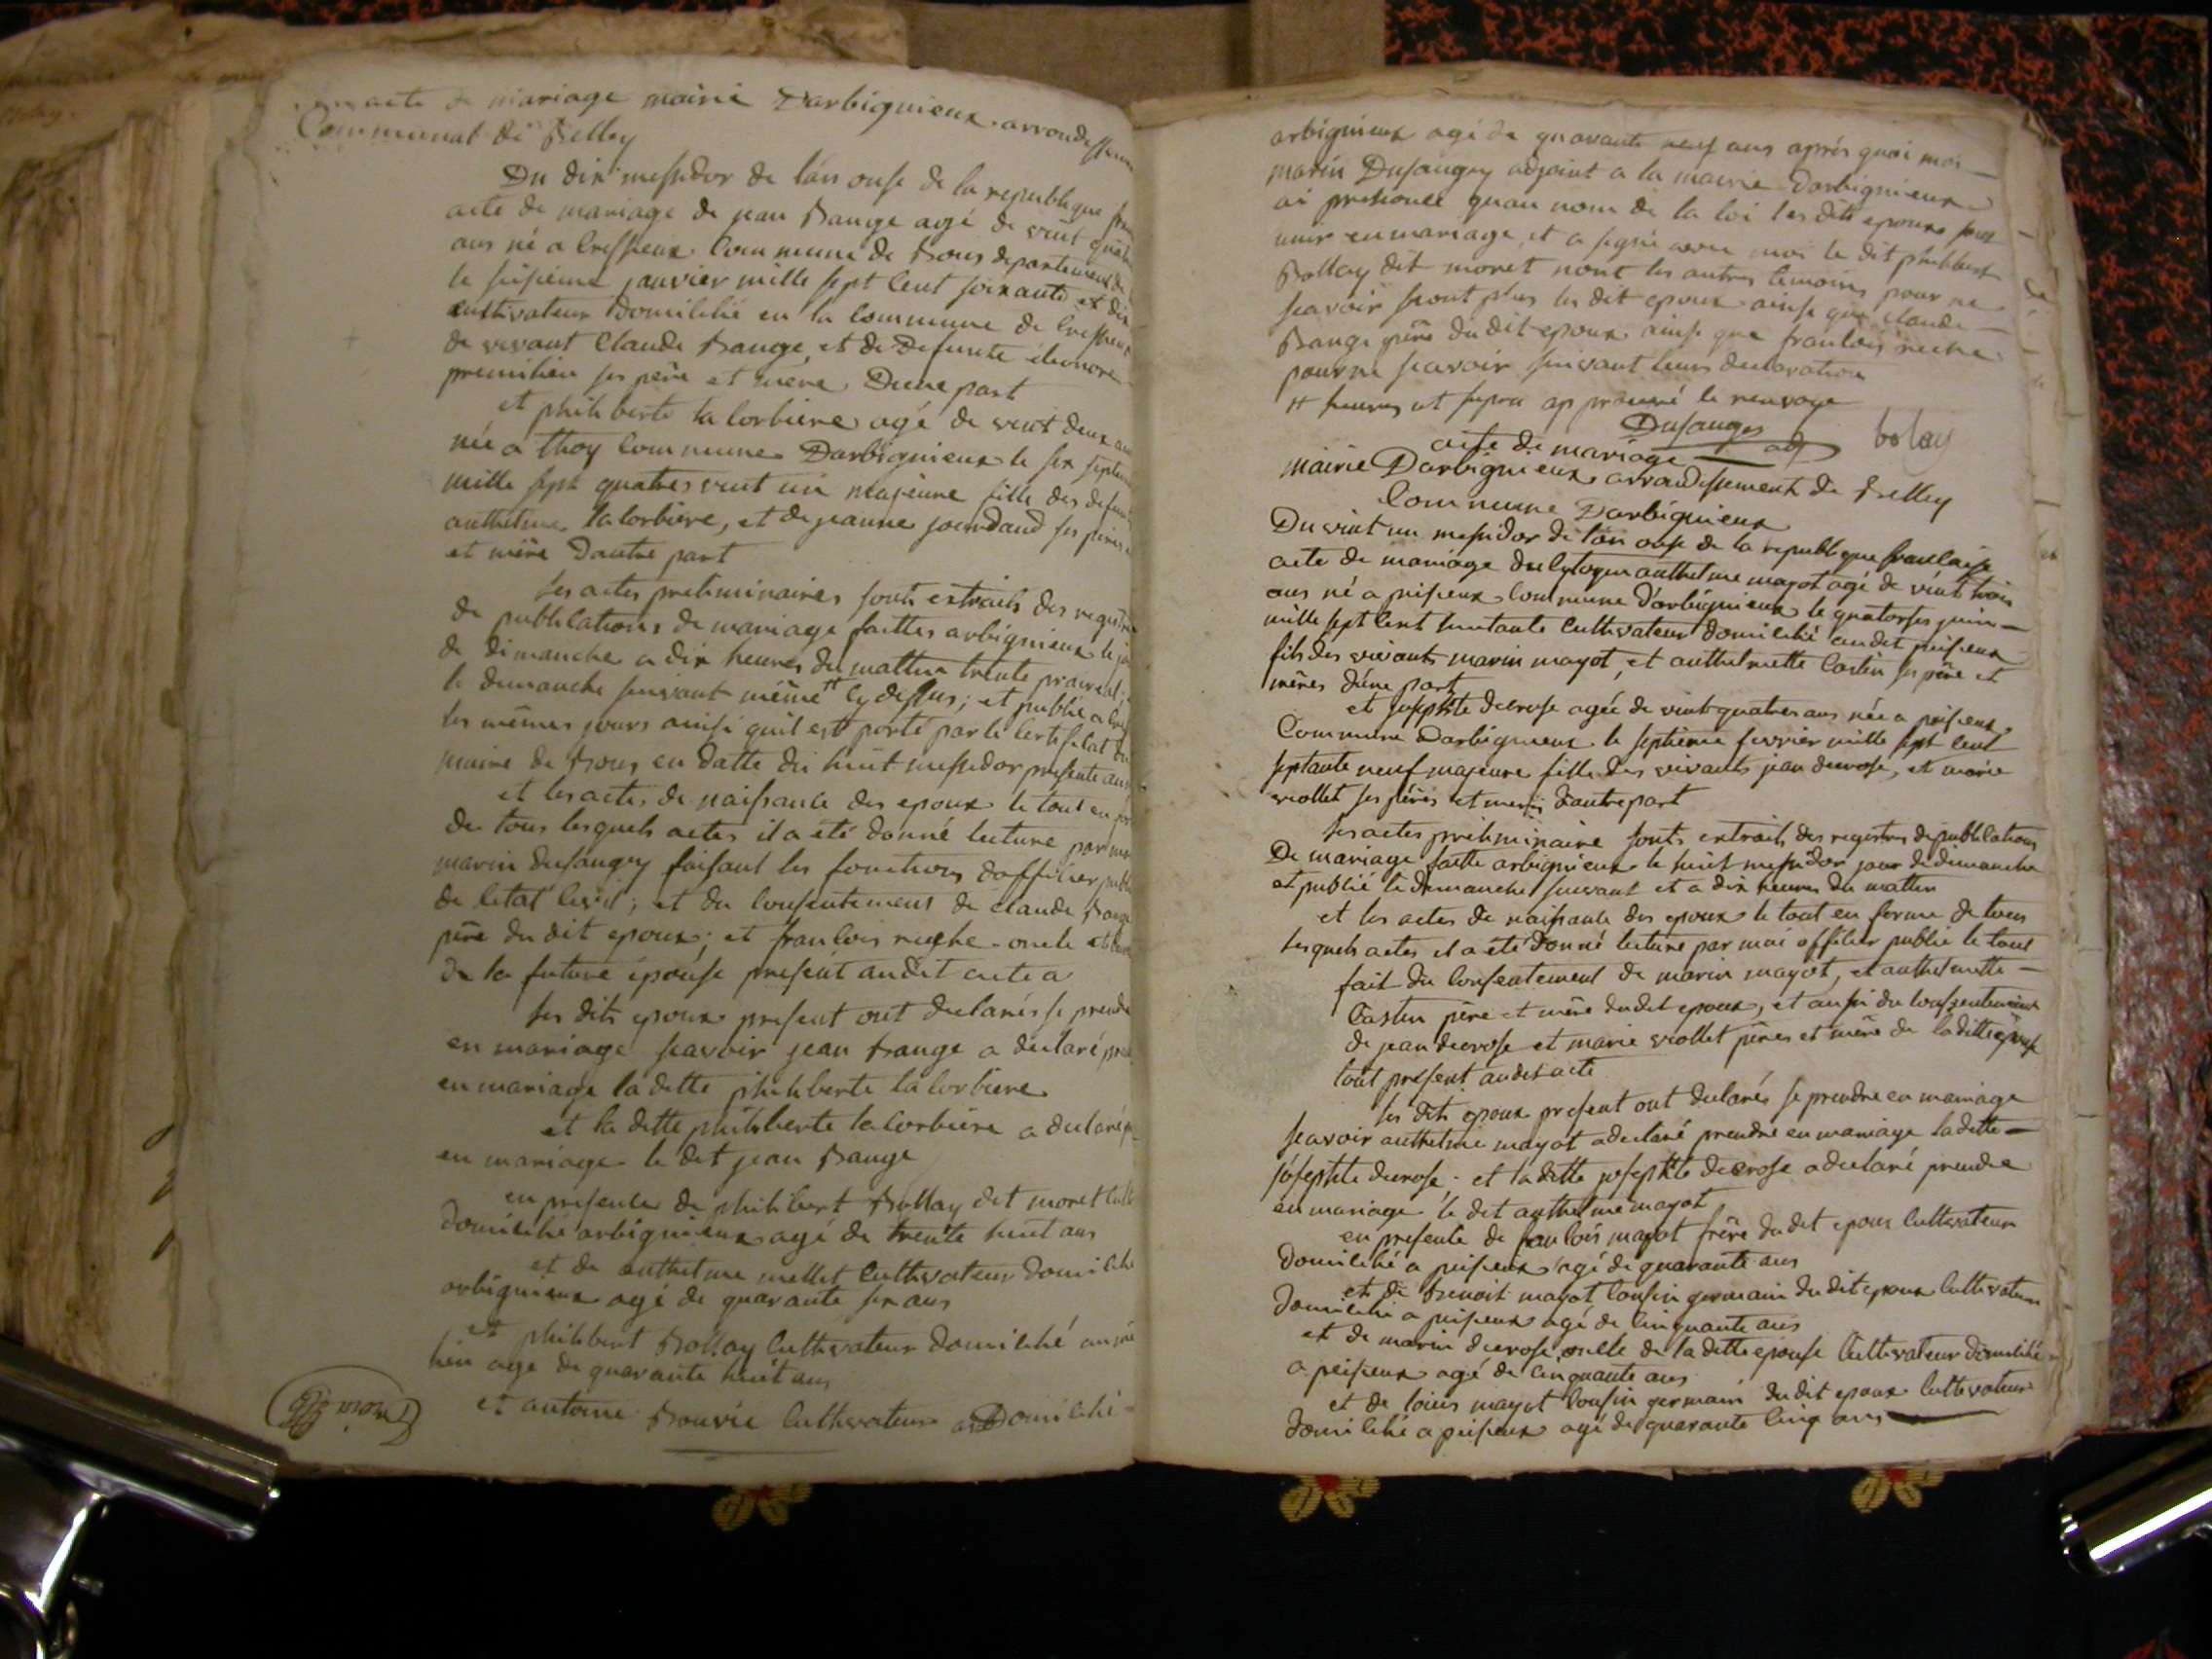 acte de mariage mairie Darbignieux arrondissem
Communal de Belley
Du dix messidor de lan onse de la republique
acte de mariage de jean Bauge agé de vint
ans né a Cressieux Commune de Bons departement de
le seisieme janvier mille sept Cent soixante et dix
cultivateur Domicilié en la Commune de Cressieux
de vivant Claude Bauge, et de Defuncte
premilieu ses père et mère Dune part
et philiberte la Corbiere agé de vint deux
née a thoy Commune Darbignieux le six septem
mille sept quatres vint un majeure fille des defun
anthelme la Corbiere, et de jeanne jourdaud ses pères
et mère Dautre part
les actes preliminaires sonts extraits des registre
de publications de mariage faittes arbignieux le
de dimanche a dix heures du mattin trente prairial;
le dimanche suivant même # cy dessus; et publié a
les mêmes jours ainsi quil est porté par le Certificat du
maire de Bons en datte du huit messidor presente
et les actes de naissance des epoux le tout en
de tous lesquels actes il a été donné lecture par moi
marin Dusaugey faisant les fonctions dofficier
de letat Civil; et du Consentement de claude Bauge
père du dit epoux; et francois ruche oncle et
de la future épouse present audit acte a
les dits epoux present ont declarés se prendre
en mariage scavoir jean Bauge a declaré
en mariage la ditte philiberte la Corbiere
et la ditte philiberte la Corbiere a declaré
en mariage le dit jean Bauge
en presence de philibert Bollay dit moret
domicilié arbignieux agé de trente huit ans
et de anthelme mellet Cultivateur domicilié
arbignieux agé de quarante six ans
et philibert Bollay Cultivateur domicilié au
lieu agé de quarante huit ans
et antoine Bouvie Cultivateur Domicilié
arbignieux agé de quarante neuf ans après quoi moi
marin Dusaugey adjoint a la mairie Darbignieux
ai prononcé quau nom de la loi les dits epoux sont
unir en mariage, et a signé avec moi le dit philibert
Bollay dit moret nont les autres temoins pour ne
scavoir non plus les dit epoux ainsi que claude
Bauge père du dit epoux ainsi que francois ruche
pour ne scavoir suivant leurs declaration
# heures ut supra approuvé le renvoye
Dusaugey adj bolay
acte de mariage
mairie Darbignieux arrondissement de Belley
Commune Darbignieux
Du vint un messidor de lan onse de la republique francaise
acte de mariage du Cytoyen anthelme mayot agé de vint trois
ans né a peisieux Commune d'arbignieux le quatorses juin
mille sept Cent huitante Cultivateur domicilié au dit peisieux
fils des vivants marin mayot, et anthelmette Castin ses père et
mères d'une part
et josephte decrose agée de vint quatres ans née a peisieux
Commune Darbignieux le septieme fevrier mille sept Cent
septante neuf majeure fille des vivants jean decrose, et marie
viollet ses pères et meres dautre part
les actes préliminaire sonts extraits des registres de publications
De mariage faitte arbignieux le huit messidor jour de dimanche
et publié le dimanche suivant et a dix heures du mattin
et les actes de naissance des epoux le tout en forme de tous
lesquels actes il a été donné lecture par moi officier public le tout
fait du Consentement de marin mayot, et anthelmette
Castin père et mère du dit epoux, et aussi du Consentement
de jean decrose et marie viollet pères et mère de la ditte epouse
tout présent audit acte
les dits epoux present ont declarés se prendre en mariage
scavoir anthelme mayot a declaré prendre en mariage la ditte
josephte decrose; et la ditte josephte decrose a declaré prendre
en mariage le dit anthelme mayot
en presence de francois mayot frère du dit epoux Cultivateur
domicilié a peisieux agé de quarante ans
et de benoit mayot Cousin germain du dit epoux Cultivateur
domicilié a peisieux agé de Cinquante ans
et de marin decrose oncle de la ditte epouse Cultivateur domicilié
a peisieux agé de Cinquante ans
et de louis mayot Cousin germain du dit epoux Cultivateur
domicilié a peisieux agé de quarante Cinq ans